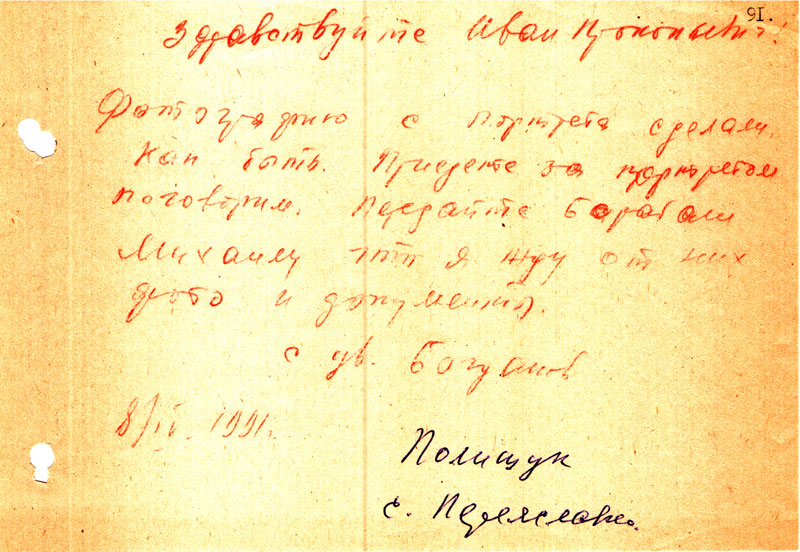 91.
Здравствуйте Иван Прокопьевич!
Фотографию с портрета сделали.
Как быть. Приедете за портретом
поговорим. Передайте
Михаилу что я жду от них
фото и документы.
с ув.
8/IV. 1991.
Полищук
с.